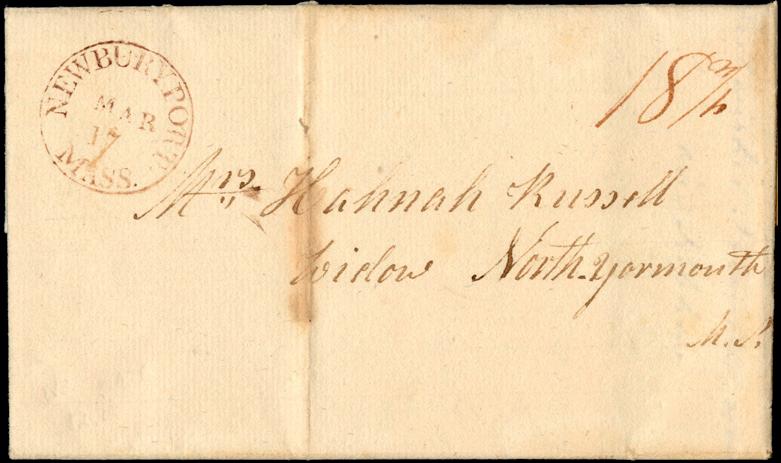 NEWBURYPORT
MAR
17
MASS.
18 3/4
Mrs. Hannah Russell
Widow North-yarmouth
M.S.